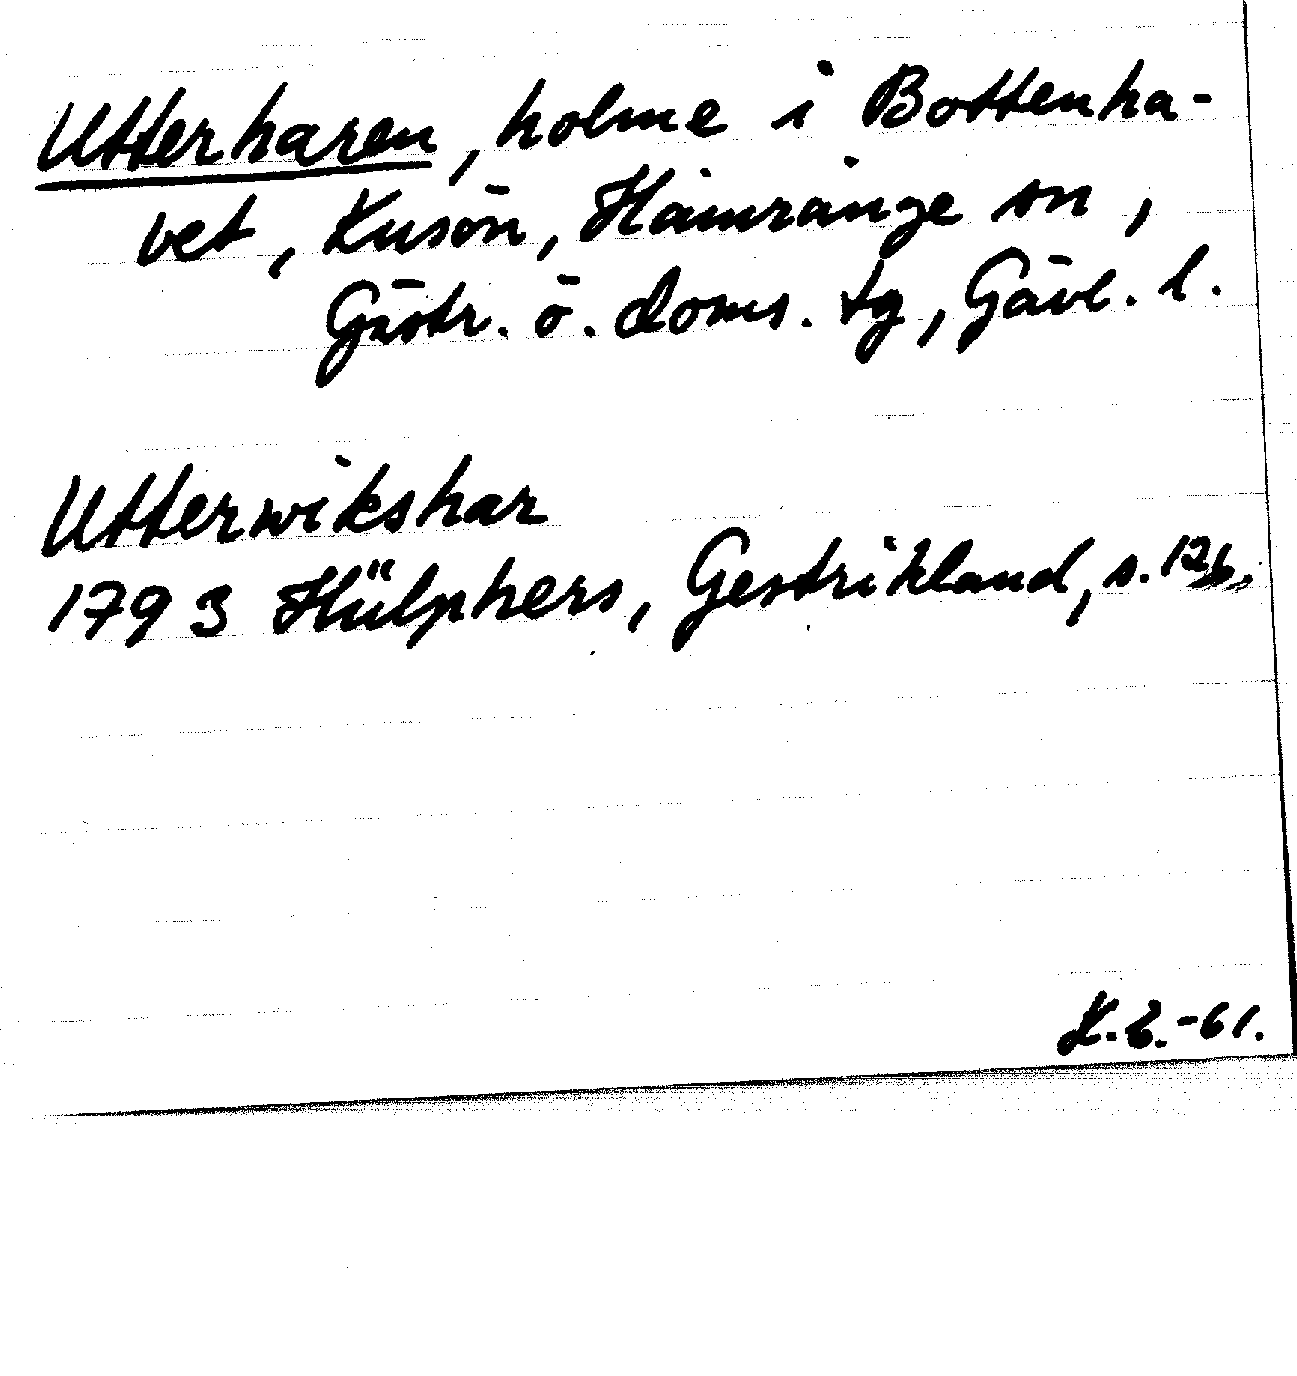 Utterharen, holme i Bottenha-
vet, Kusön, Hamrånge sn,
Gästr. ö. doms. tg, Gävl. l.
Utterwikshar
1793 Hülphers, Gestrikland, s. 126.
K.E.-61.